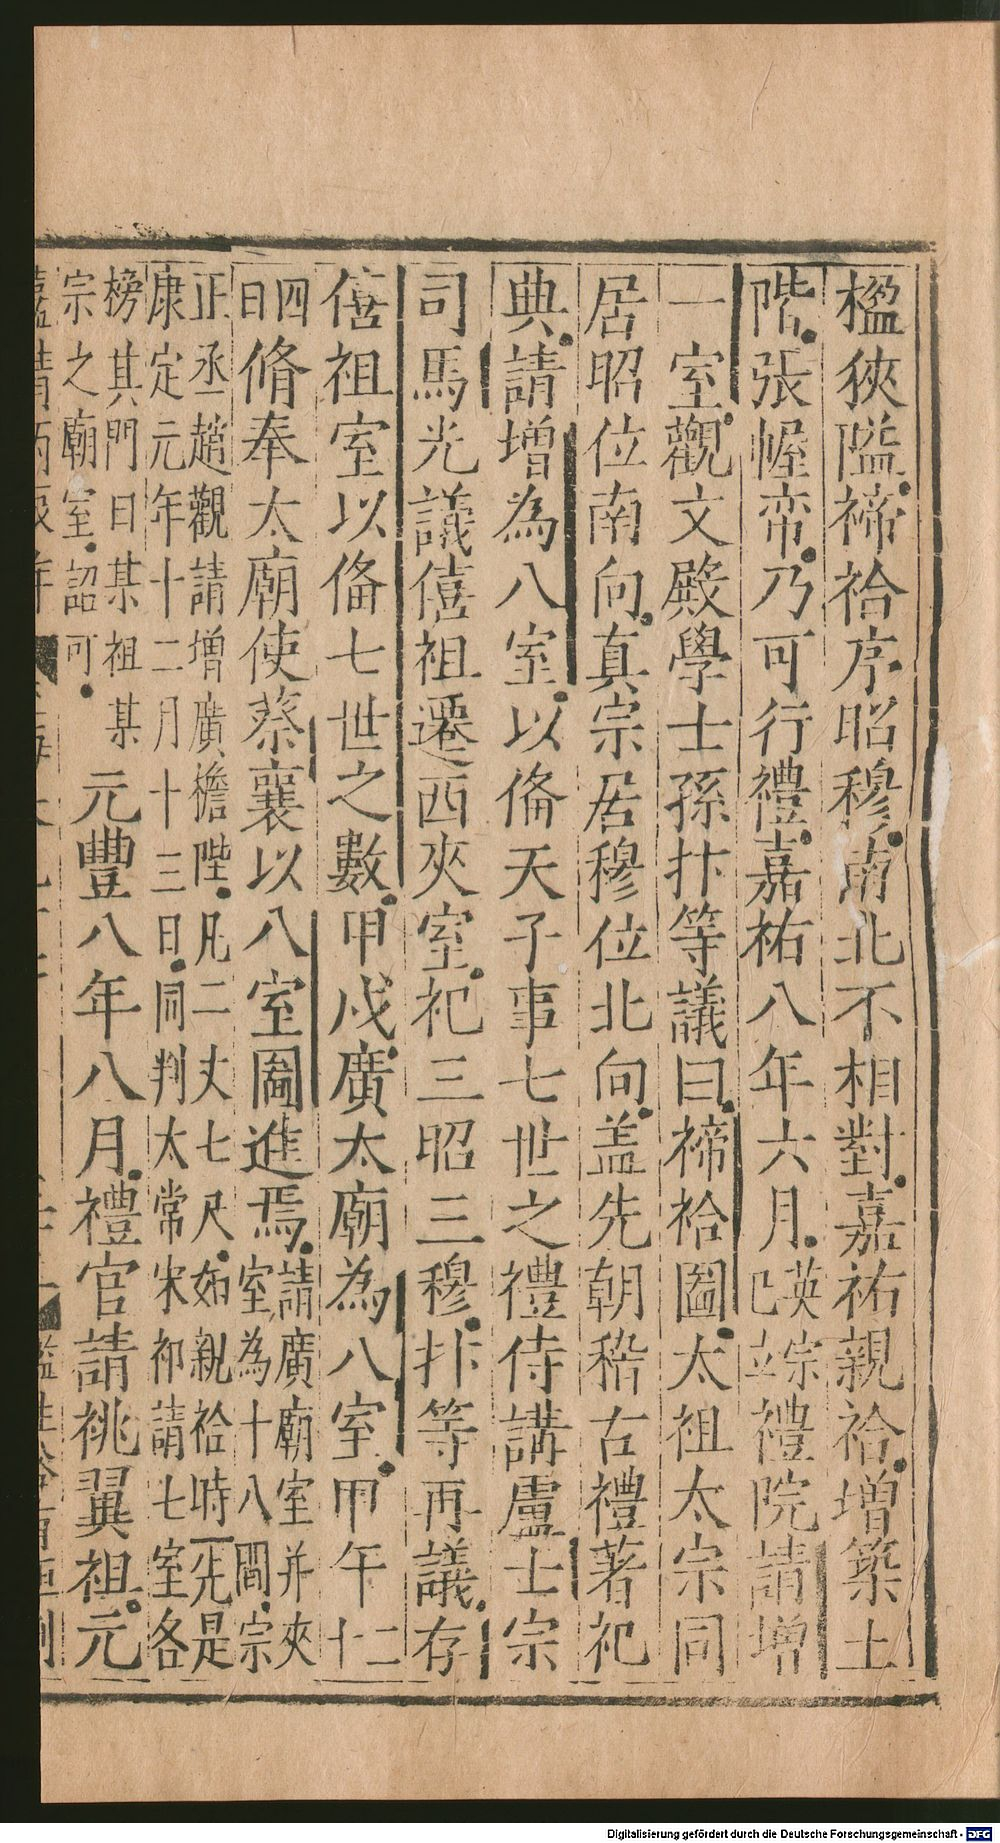 楹狹隘禘祫序昭穆南北不相對嘉祐親祫增築土
階張幄帟乃可行禮嘉祐八年六月英宗已立禮院請增
一室觀文殿學士孫抃等議曰禘祫圖太祖太宗同
居昭位南向真宗居穆位北向盖先朝稽古禮著祀
典請增為八室以俻天子事七世之禮侍講盧士宗
司馬光議僖祖遷西夾室祀三昭三穆抃等再議存
僖祖室以俻七世之數甲戌廣太廟為八室甲午十二
四日脩奉太廟使蔡襄以八室圖進焉請廣廟室并夾室為十八間宗
正丞趙觀請增廣檐陛凡二丈七尺如親祫時先是康定元年十二月十三日同判太常宋祁請七室各
榜其門曰某祖某宗之廟室詔可元豐八年八月禮官請祧翼祖元
Digitalisierung gefördert durch die Deutsche Forschungsgemeinschaft - DFG